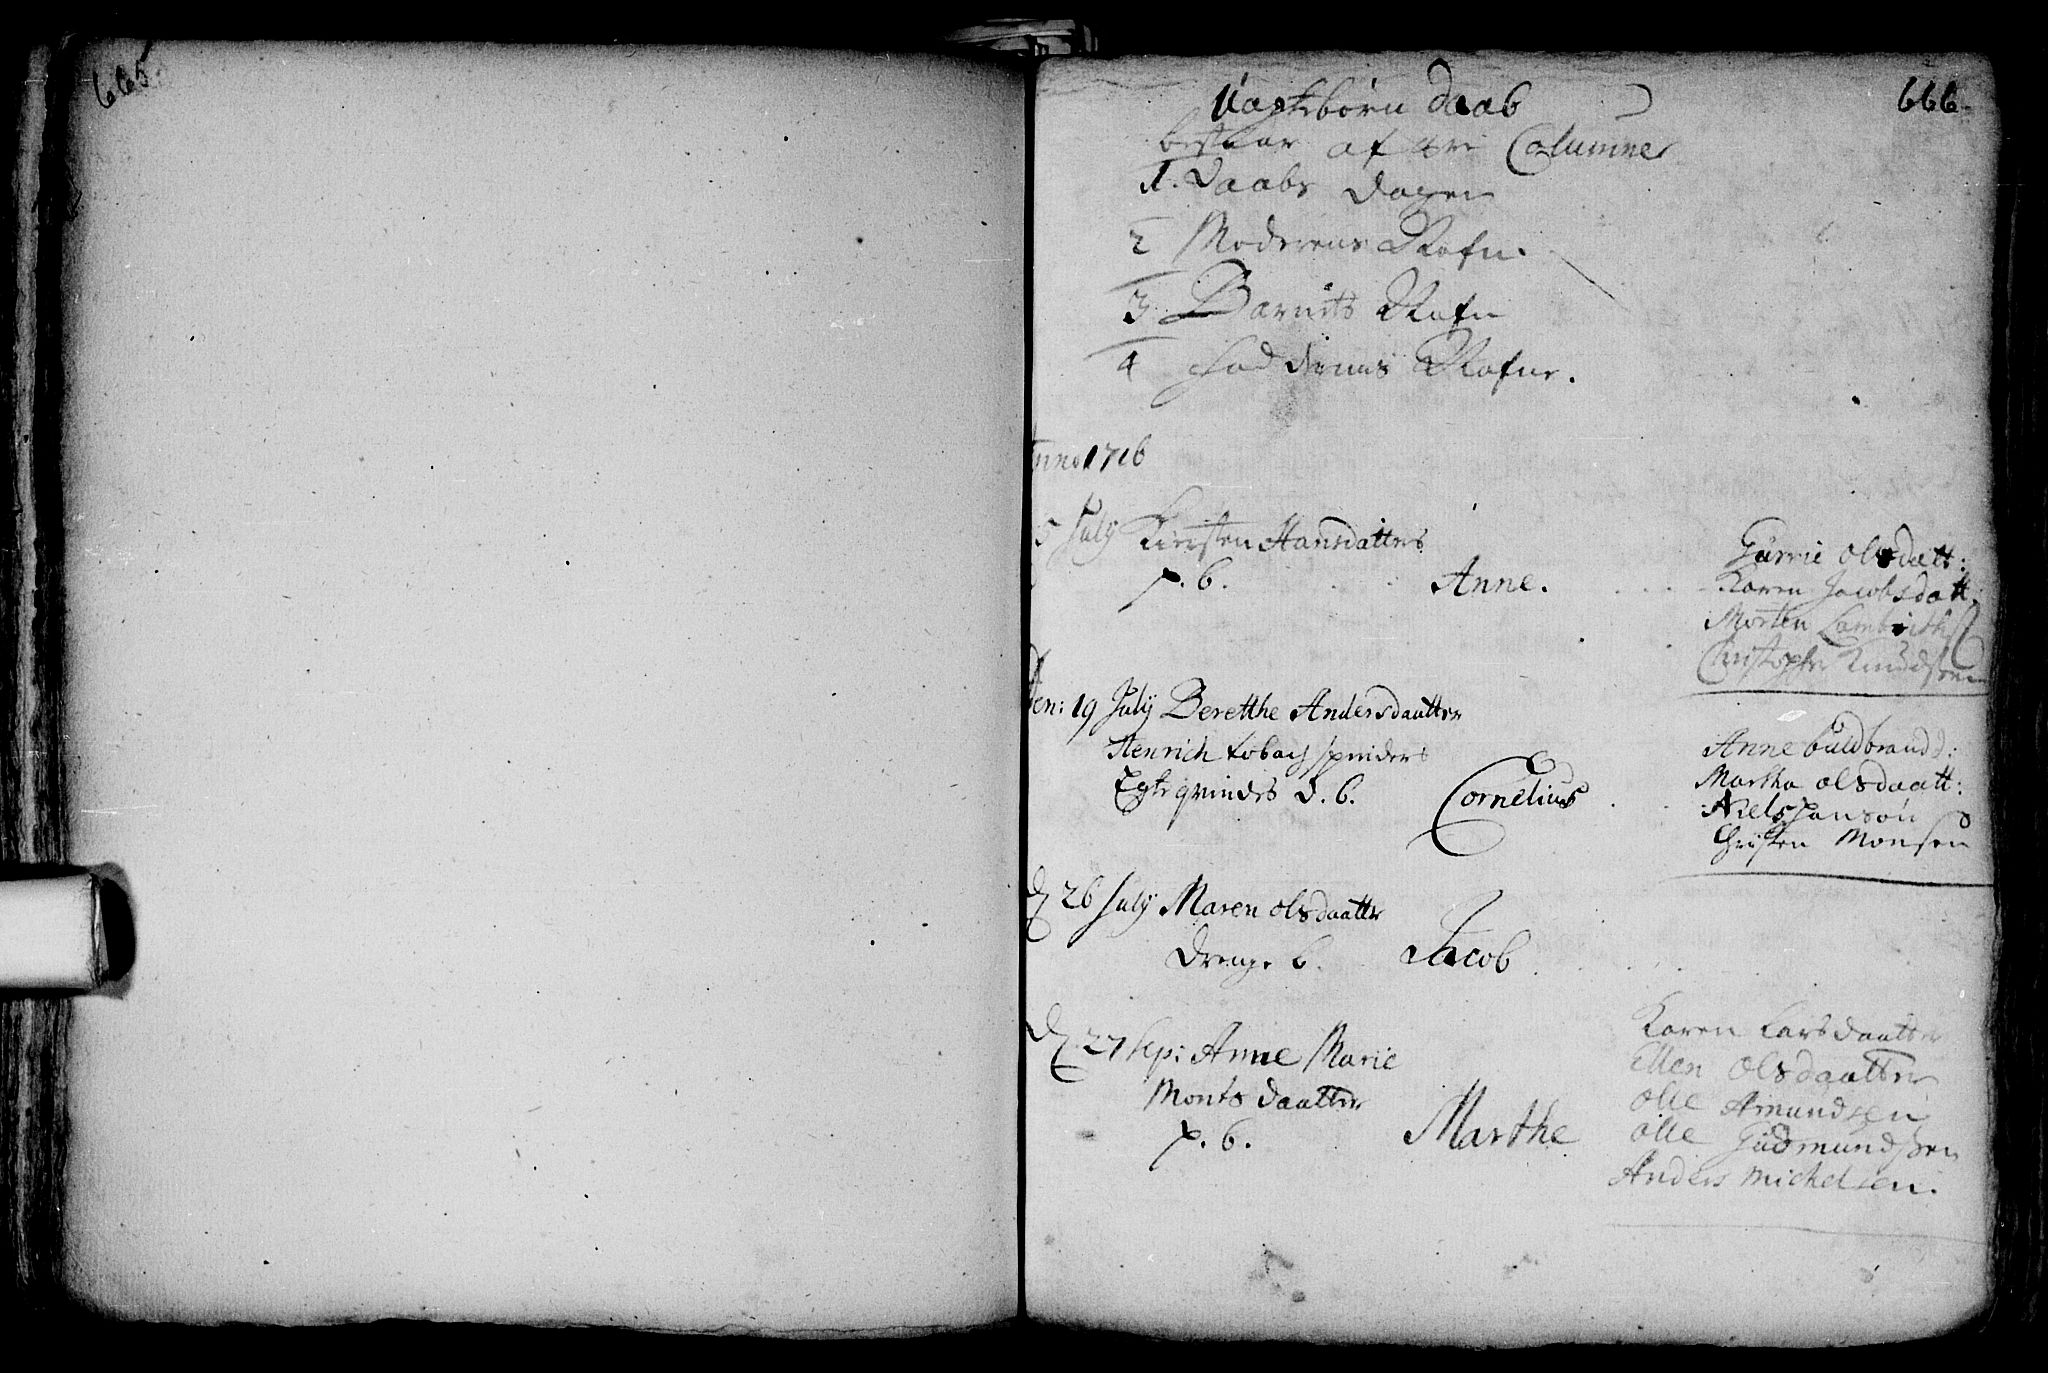 665
666
Uægtebørn Daab
bestaar af tre Columner
1. Daabs Dagen
2 Moderens Nafn.
3 Barnets Nafn
4 Faddernes Nafne.
Anno 1716
5 July Kirsten Hansdatters
p. b. Anne.
Gurrie Olsdatt:
Karen Jacobsdatt:
Morten
Christopher Knudsen
Den: 19 July Berethe Andersdaatter
Henrich tobach spinders
Egteqvindes d. b. Cornelius
Anne Guldbrandd:
Martha Olsdaatt:
Niels Jansøn
Christen Monsen
d 26 July Maren Olsdaatter
Drenge b. Jacob
d. 27 Sep: Anne Marie
Monts Daatter
p. b. Marthe
Karen Larsdaatter
Ellen Olsdaatter
Olle Amundsen
Olle Gudmundsen
Anders Michelsen.